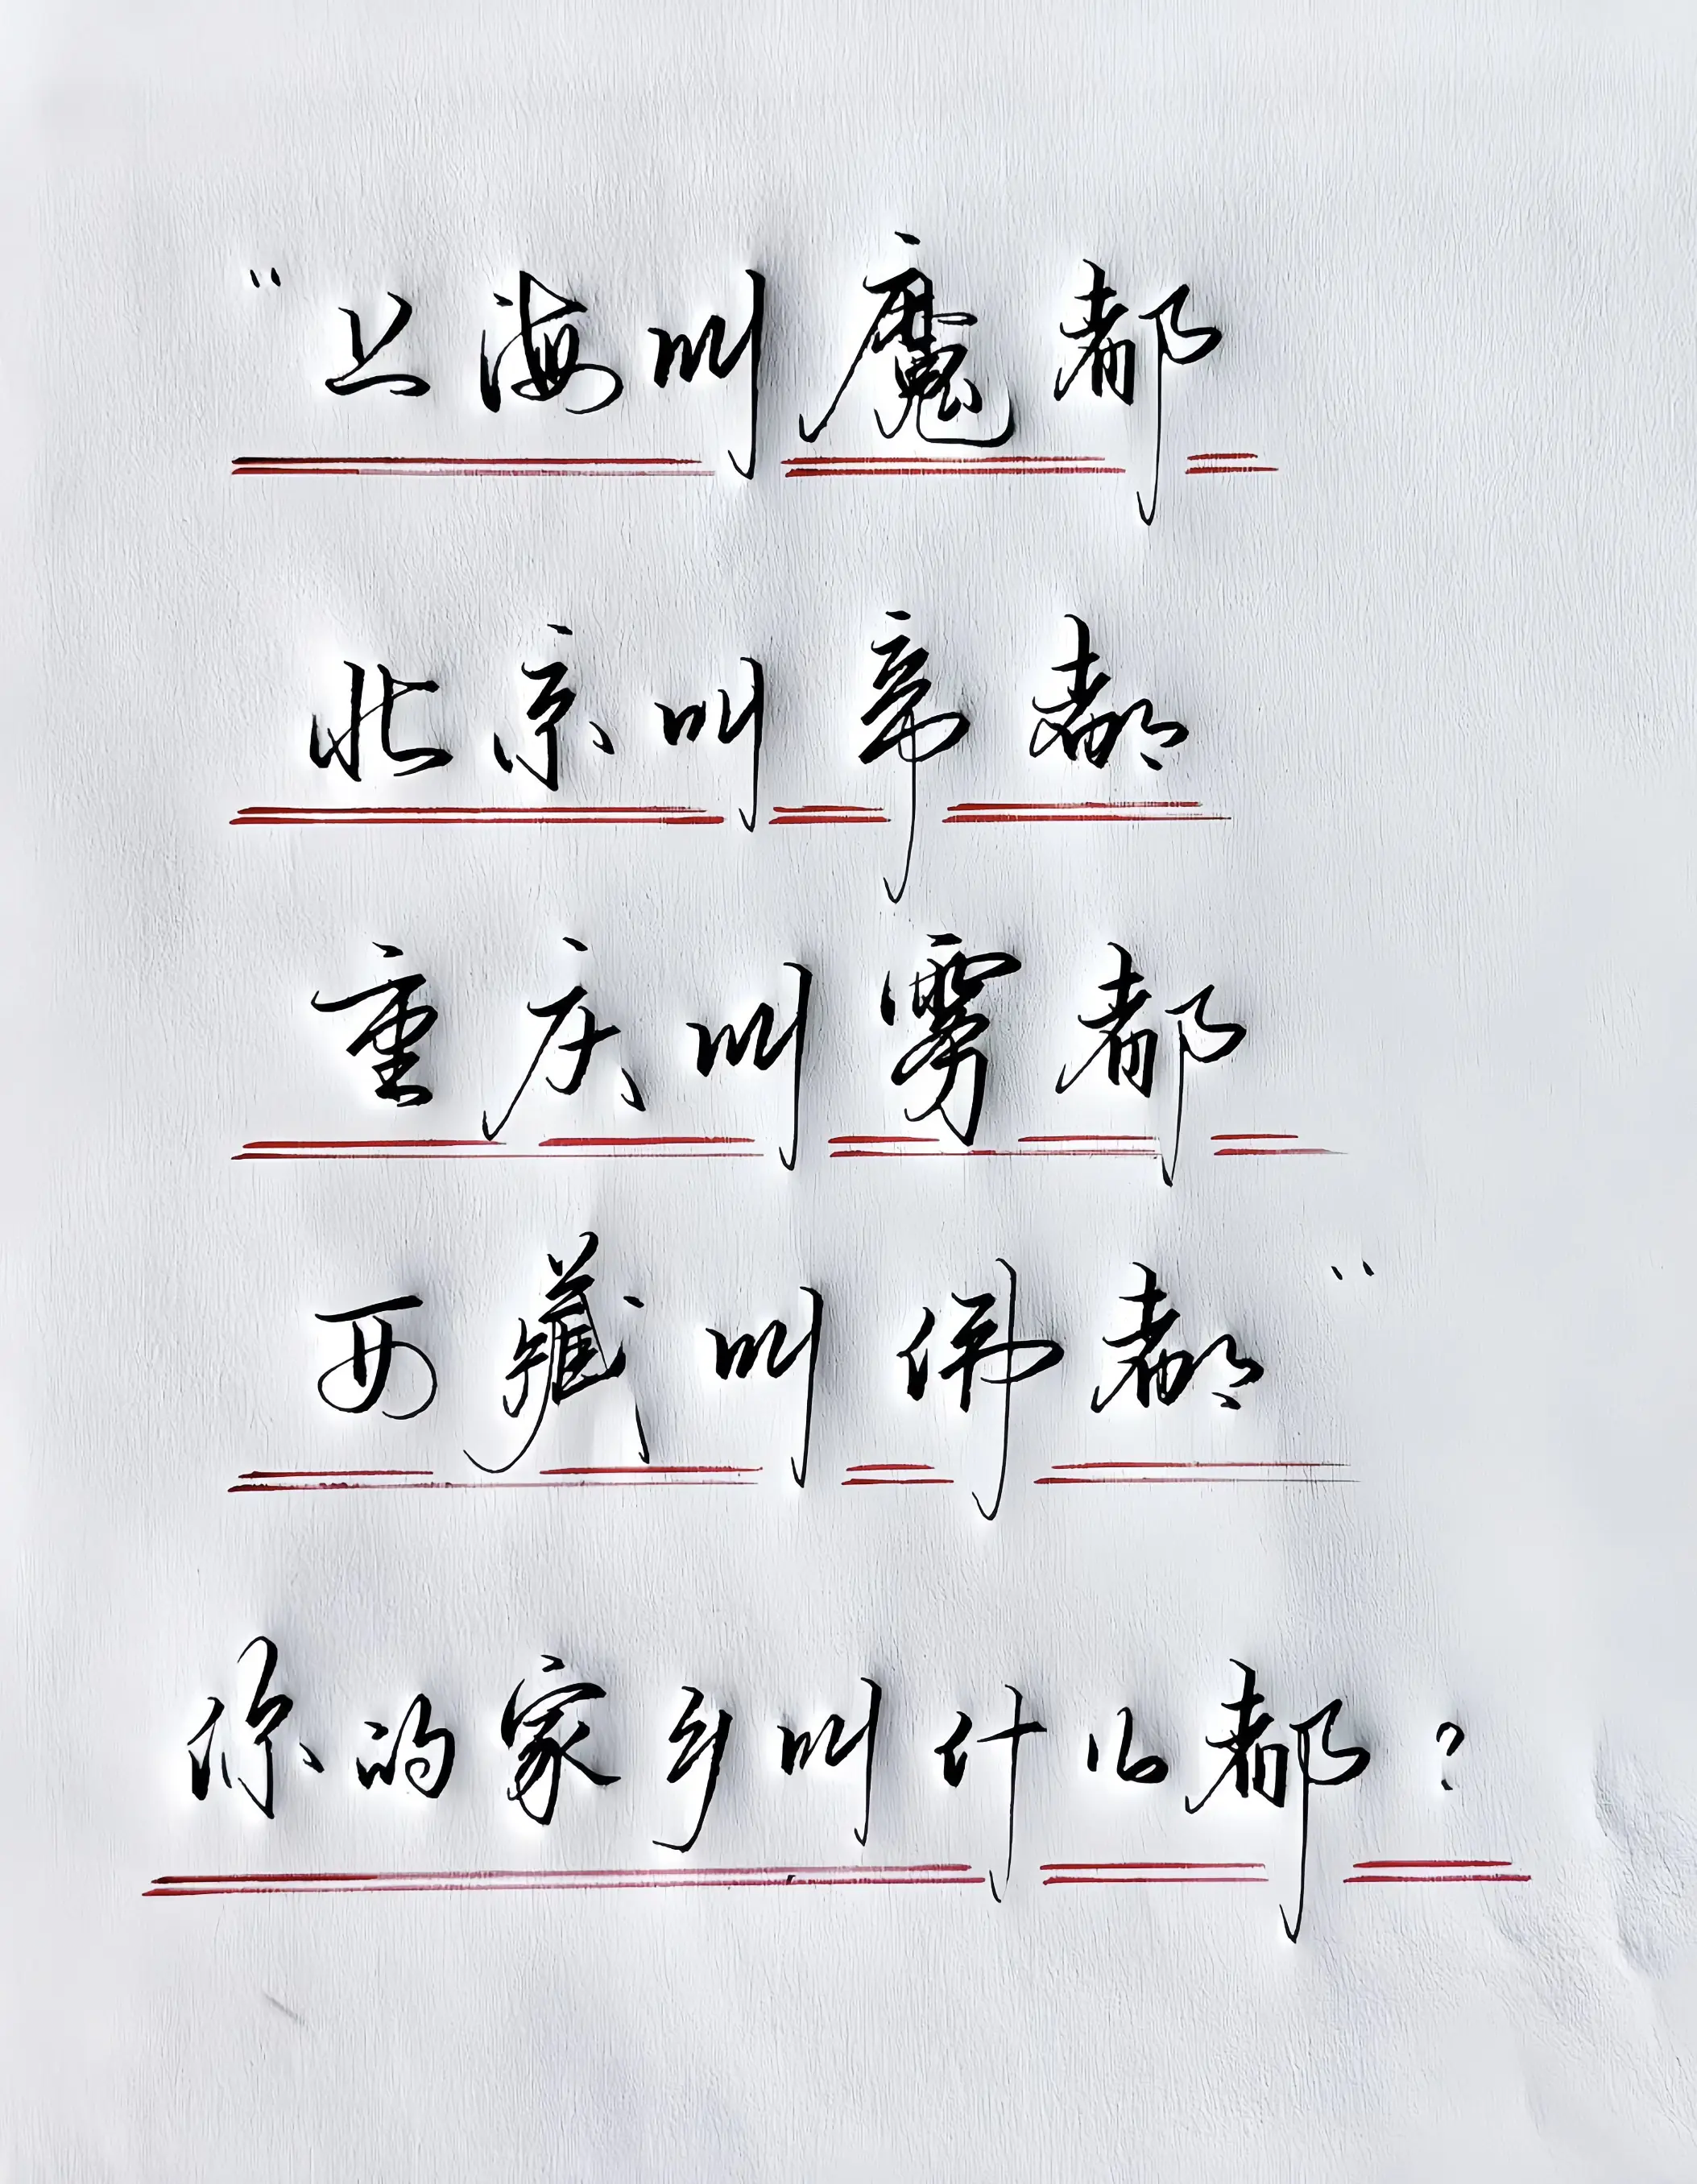 "上海叫魔都
北京叫帝都
重庆叫雾都
西藏叫佛都"
你的家乡叫什么都?